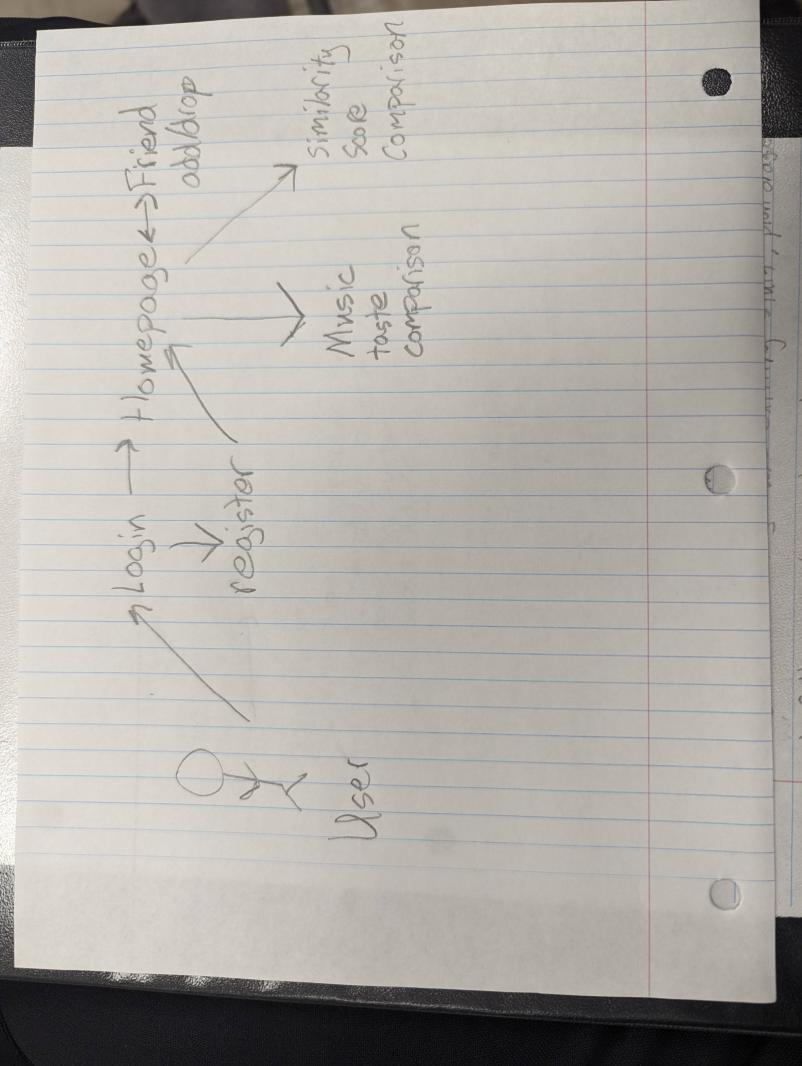 User
Login
register
Homepage
Friend
add/drop
Music
taste
comparison
Similarity
Score
Comparison